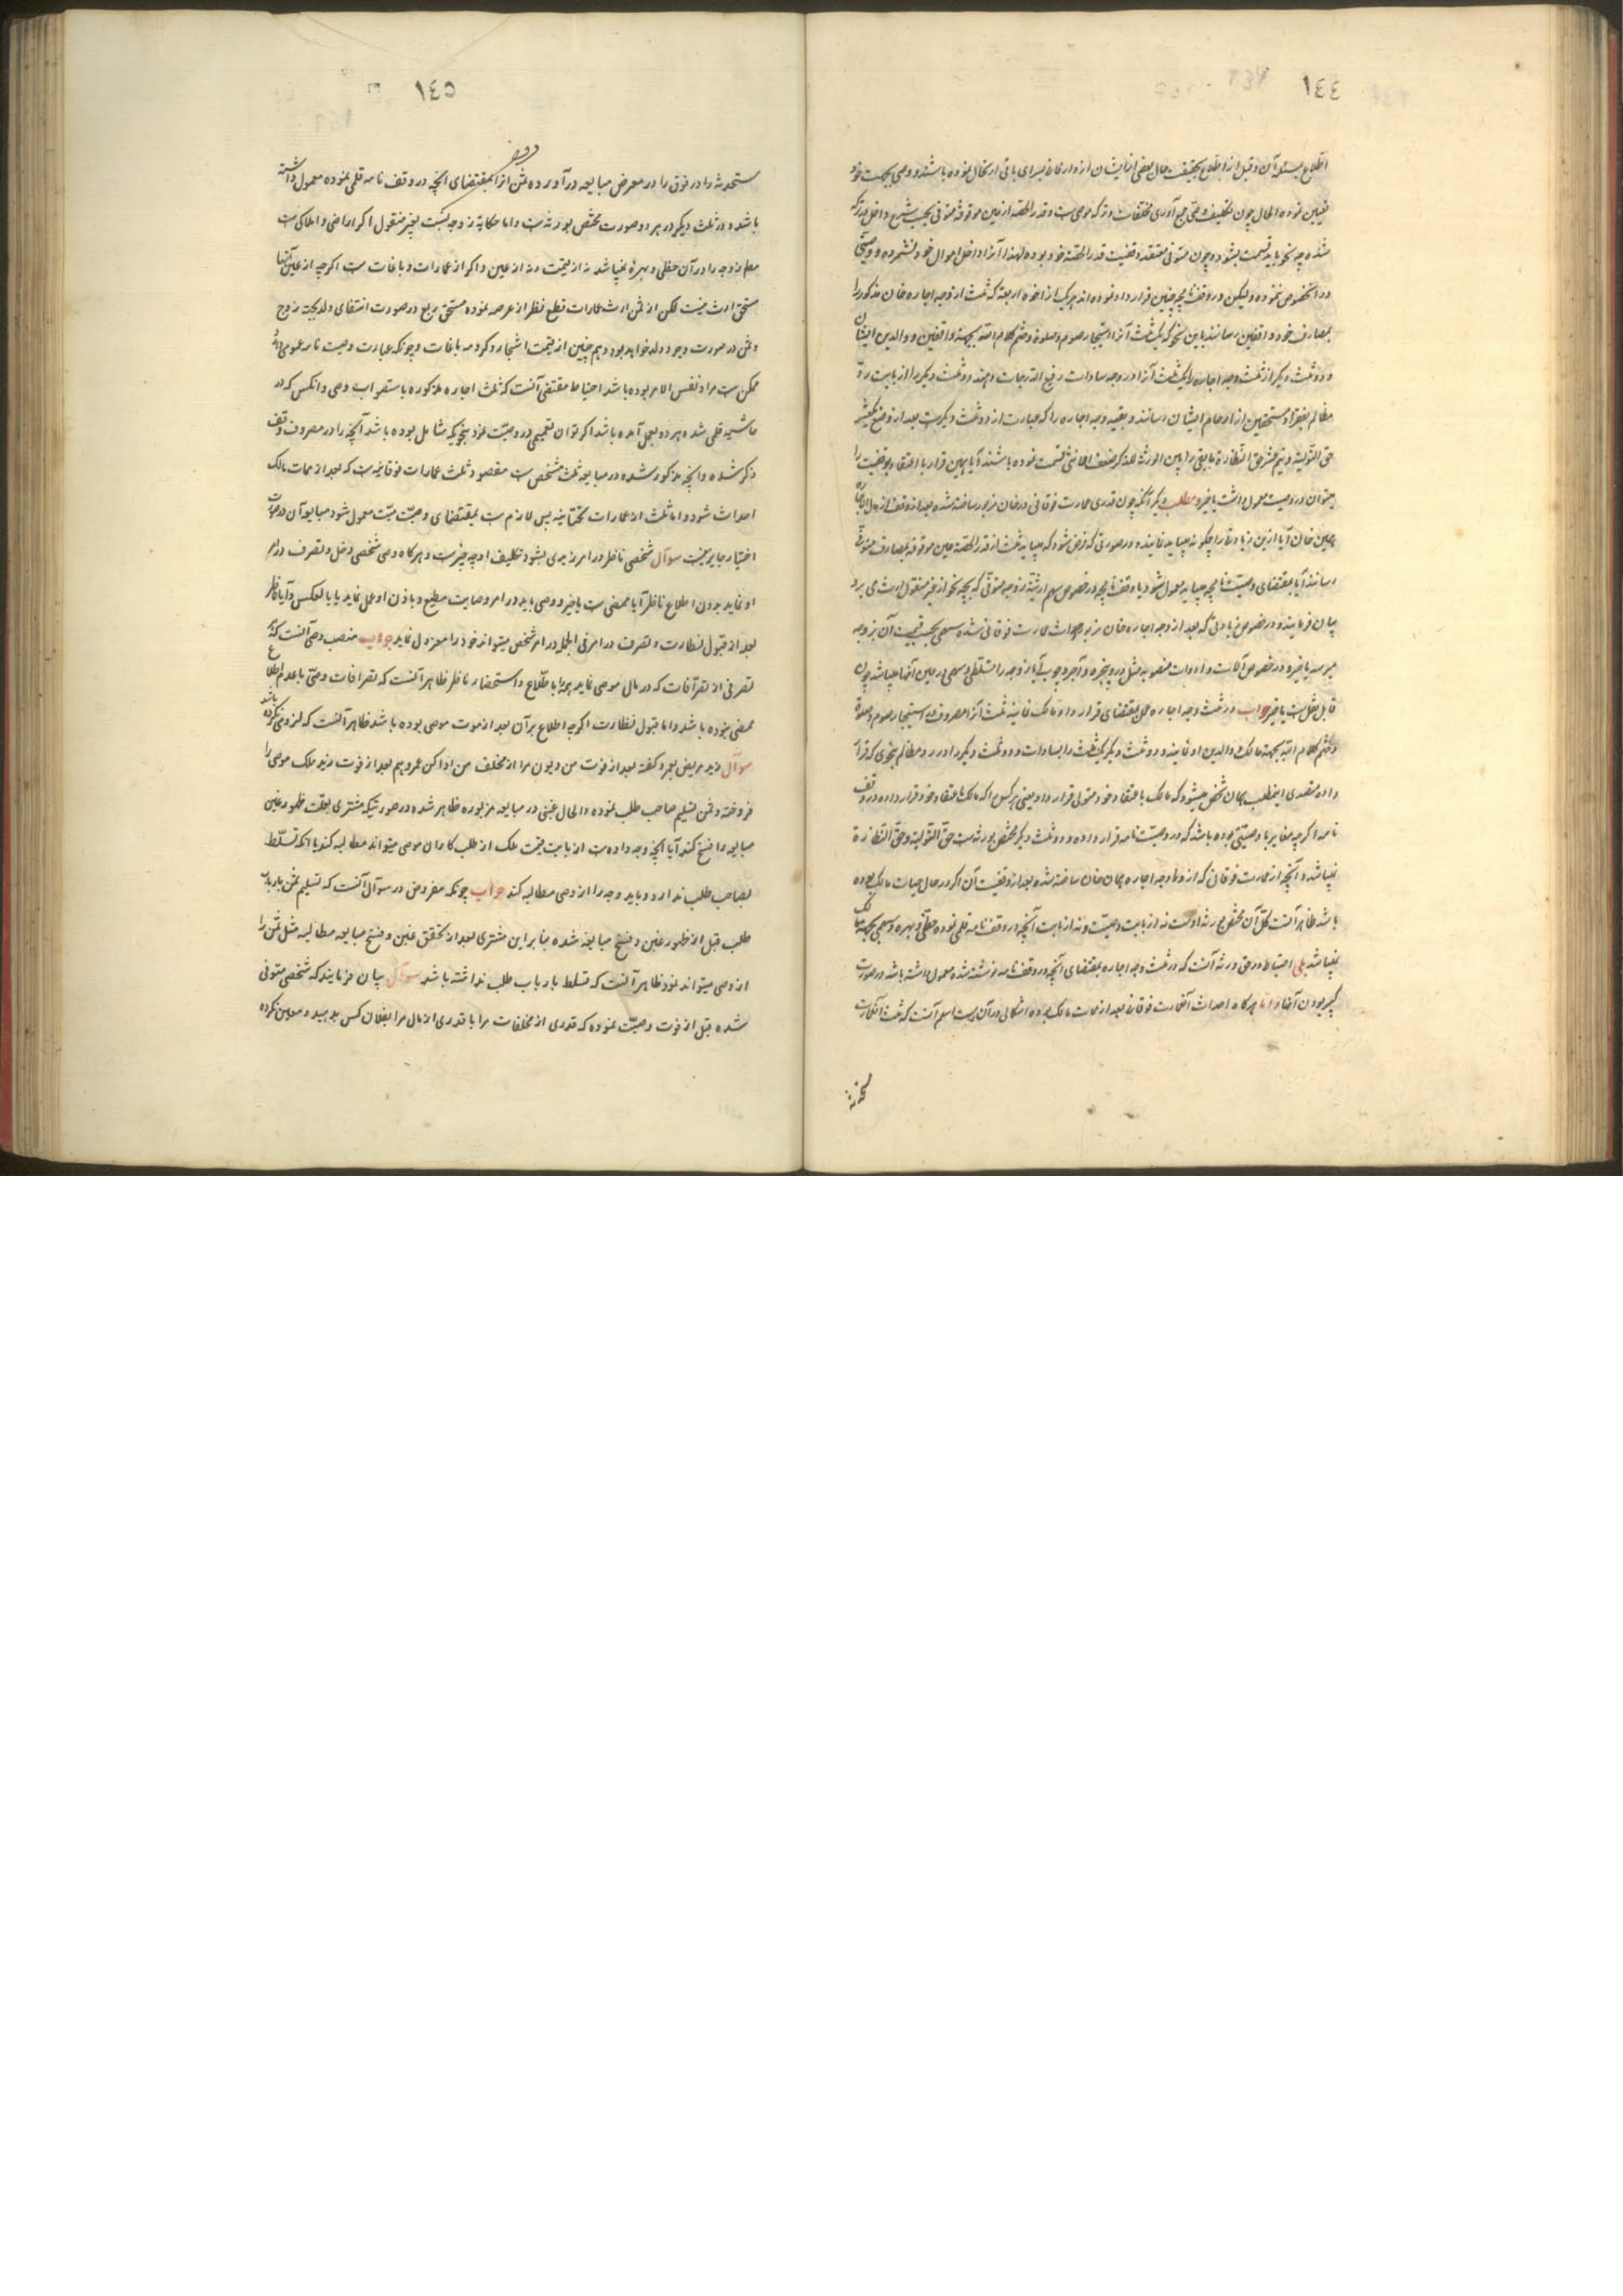 ١٤٤
اطلاع بمسئله آن و قبل از اطلاع بحقیقت حال بعضی از ایشان از دار فانی بسرای باقی ارتحال نموده باشند و وصی بجهت خود
تعیین نموده الحال چون تکلیف وصی جمع آوری مخلفات و ترکه موصی است و قدر الحصه از عین موقوفه متوفی بحسب شرع داخل در ترکه
شده چه نحو باید قسمت بشود و چون متوفی معتقد وقفیت قدر الحصه خود بوده لهذا آنرا داخل اموال خود نشمرده و وصیتی
در انخصوص ننموده ولیکن در وقفنامچه چنین قرارداد نموده اند هر یک از اخوه اربعه که ثلث از وجه اجاره خان مذکور را
بمصارف خود و واقفین رسانند باین نحو که یکثلث آنرا استیجار صوم و صلوة و ختم کلام الله بجهة واقفین و والدین ایشان
و دو ثلث دیگر از ثلث وجه اجاره را یکثلث آنرا در وجه سادات رفیع الدرجات دهند و دو ثلث دیگر را از بابت رد
مظالم بفقرا و مستحقین از ارحام ایشان رسانند و بقیه وجه اجاره را که عبارت از دو ثلث دیگرست بعد از وضع یکعشر
حق التولیه و نیم عشر حق النظارة مابقی را بین الورثه للذکر ضعف الانثی قسمت نموده باشند آیا بهمین قرار با اعتقاد بوقفیت را
میتوان در وصیت معمول داشت یا خیر و مطلب دیگر آنکه چون قدری عمارت فوقانی در خان مزبور ساخته شده بعد از وقف از مال الاجاره
همین خان آیا ازین زیادتی را چگونه میباید نمایند و در صورتی که فرض شود که میباید ثلث از قدر الحصه عین موقوفه بمصارف متوفی
رسانند آیا بمقتضای وصیتنامچه میباید معمول شود یا وقفنامچه و در خصوص سهم ارثیه زوجه متوفی که بچه نحو از غیر منقول ارث می برد
بیان فرمایند و در خصوص زیادتی که بعد از وجه اجاره خان مزبور احداث عمارت فوقانی شده سهمی بحسب قیمت آن بزوجه
میرسد یا خیر و در خصوص آلات و ادوات منصوبه مثل در و پنجره و آجر و چوب آیا زوجه را تسلطی و سهمی در عین آنها میباشد چون
قابل نقل است یا خیر جواب در ثلث وجه اجاره عمل بمقتضای قرارداد مالک نمایند ثلث آنرا مصروف در استیجار صوم و صلوة
و ختم کلام الله بجهة مالک و والدین او نمایند و دو ثلث دیگر یکثلث را بسادات و دو ثلث دیگر را در رد مظالم بنحوی که قرار
داده متصدی اینمطلب همان شخص میشود که مالک باعتقاد خود متولی قرار داد و یعنی هر کس را که مالک باعتقاد خود قرار داده در وقف
نامه اگر چه مغایر با وصیتی بوده باشد که در وصیتنامه قرار داده و دو ثلث دیگر مختص بورثه است حق التولیه و حق النظارة
نمیباشد و آنچه از عمارت فوقانی که از وجه اجاره همان خان ساخته شده بعد از وقفیت آن اگر در حال حیات مالک بوده
باشد ظاهر آنست کل آن مختص بورثه اوست نه از بابت وصیت و نه از بابت آنچه در وقفنامه قلمی نموده حظی و بهره و سهمی بجهة مالک
نمیباشد بلی احتیاط در حق ورثه آنست که در ثلث وجه اجاره بمقتضای آنچه در وقفنامه نوشته شده معمول داشته باشد در صورت
کبیر بودن آنها و اما هرگاه احداث آنعمارت فوقانی بعد از ممات مالک بوده اشکالی در آن نیست اسلم آنست که ثلث آنعمارت
١٤٥
مستحدثه را در فوق را در معرض مبایعه در آورده ثمن انرا بمقتضای انچه در وقف نامه قلمی نموده معمول داشته
باشد و در ثلث دیگر در هر دو صورت مختص بورثه ست و اما حکایة زوجه نسبت بغیر منقول اگر اراضی و املاکی ست
معلم زوجه را در آن حظی و بهرۀ نمیباشد نه از قیمت و نه از عین و اگر از عمارات و باغات ست اگر چه از عین آنها
مستحق ارث نیست لکن از ثمن ارث عمارات قطع نظر از عرصه نموده مستحق ربع در صورت انتفای ولد بجهة زوج
و ثمن در صورت وجود ولد خواهد بود و هم چنین از قیمت اشجار و کرومه باغات و چونکه عبارت وصیت نامه عمومی دارد
ممکن ست مراد نفس الامر بوده باشد احتیاط مقتضی آنست که ثلث اجاره مذکوره باستصواب وصی و انکس که در
حاشیه قلمی شده هر دو بعمل آمده باشد اگر توان تعمیمی در وصیت نمود بنحویکه شامل بوده باشد آنچه را در مصروف وقف
ذکر شده و انچه مذکور شده در مبایعه ثلث مشخص ست مقصود ثلث عمارات فوقانیه ست که بعد از ممات مالک
احداث شود و اما ثلث از عمارات تحتانیه پس لازم ست بمقتضای وصیت میت معمول شود مبایعه آن در صورت
اختیار جایز نیست سوآل شخصی ناظر در امر زیدی بشود تکلیف او چه چیز ست و هرگاه وصی شخصی دخل و تصرف در امر
او نماید بدون اطلاع ناظر آیا ممضی ست یا خیر و وصی باید در امر وصایت مطیع و باذن او عمل نماید یا بالعکس و آیا ناظر
بعد از قبول نظارت و تصرف در امر فی الجمله در امر شخص میتواند خود را معزول نماید جواب منصب وصی آنست که
تصرفی از تصرفات که در مال موصی نماید همه را باطلاع و استحضار ناظر نظاهر آنست که تصرفات وصی با عدم اطلاع
ممضی نبوده باشد و اما قبول نظارت اگر چه اطلاع بر آن بعد از موت موصی بوده باشد ظاهر آنست که لزومی نکرده باشد
سوآل زید مریض بعمرو گفته بعد از فوت من دیون مرا از مخلف من ادا کن عمرو هم بعد از فوت زید ملک موصی را
فروخته و ثمن تسلیم صاحب طلب نموده و الحال غبنی در مبایعه مزبوره ظاهر شده در صورتیکه مشتری بعلت ظهور غبن
مبایعه را فسخ کند آیا انچه وجه داده ست از بابت قیمت ملک از طلب کاران موصی میتواند مطالبه کند یا انکه تسلط
بصاحب طلب ندارد و باید وجه را از وصی مطالبه کند جواب چونکه مفروض در سوآل آنست که تسلیم ثمن بارباب
طلب قبل از ظهور غبن و فسخ مبایعه شده بنابر این مشتری بعد از تحقق غبن و فسخ مبایعه مطالبه مثل ثمن را
از وصی میتواند نمود ظاهر آنست که تسلط بارباب طلب نداشته باشد سوآل بیان فرمایند که شخص متوفی
شده قبل از فوت وصیت نموده که قدری از مخلفات مرا یا قدری از مال مرا بفلان کس بدهید و معین نکرده